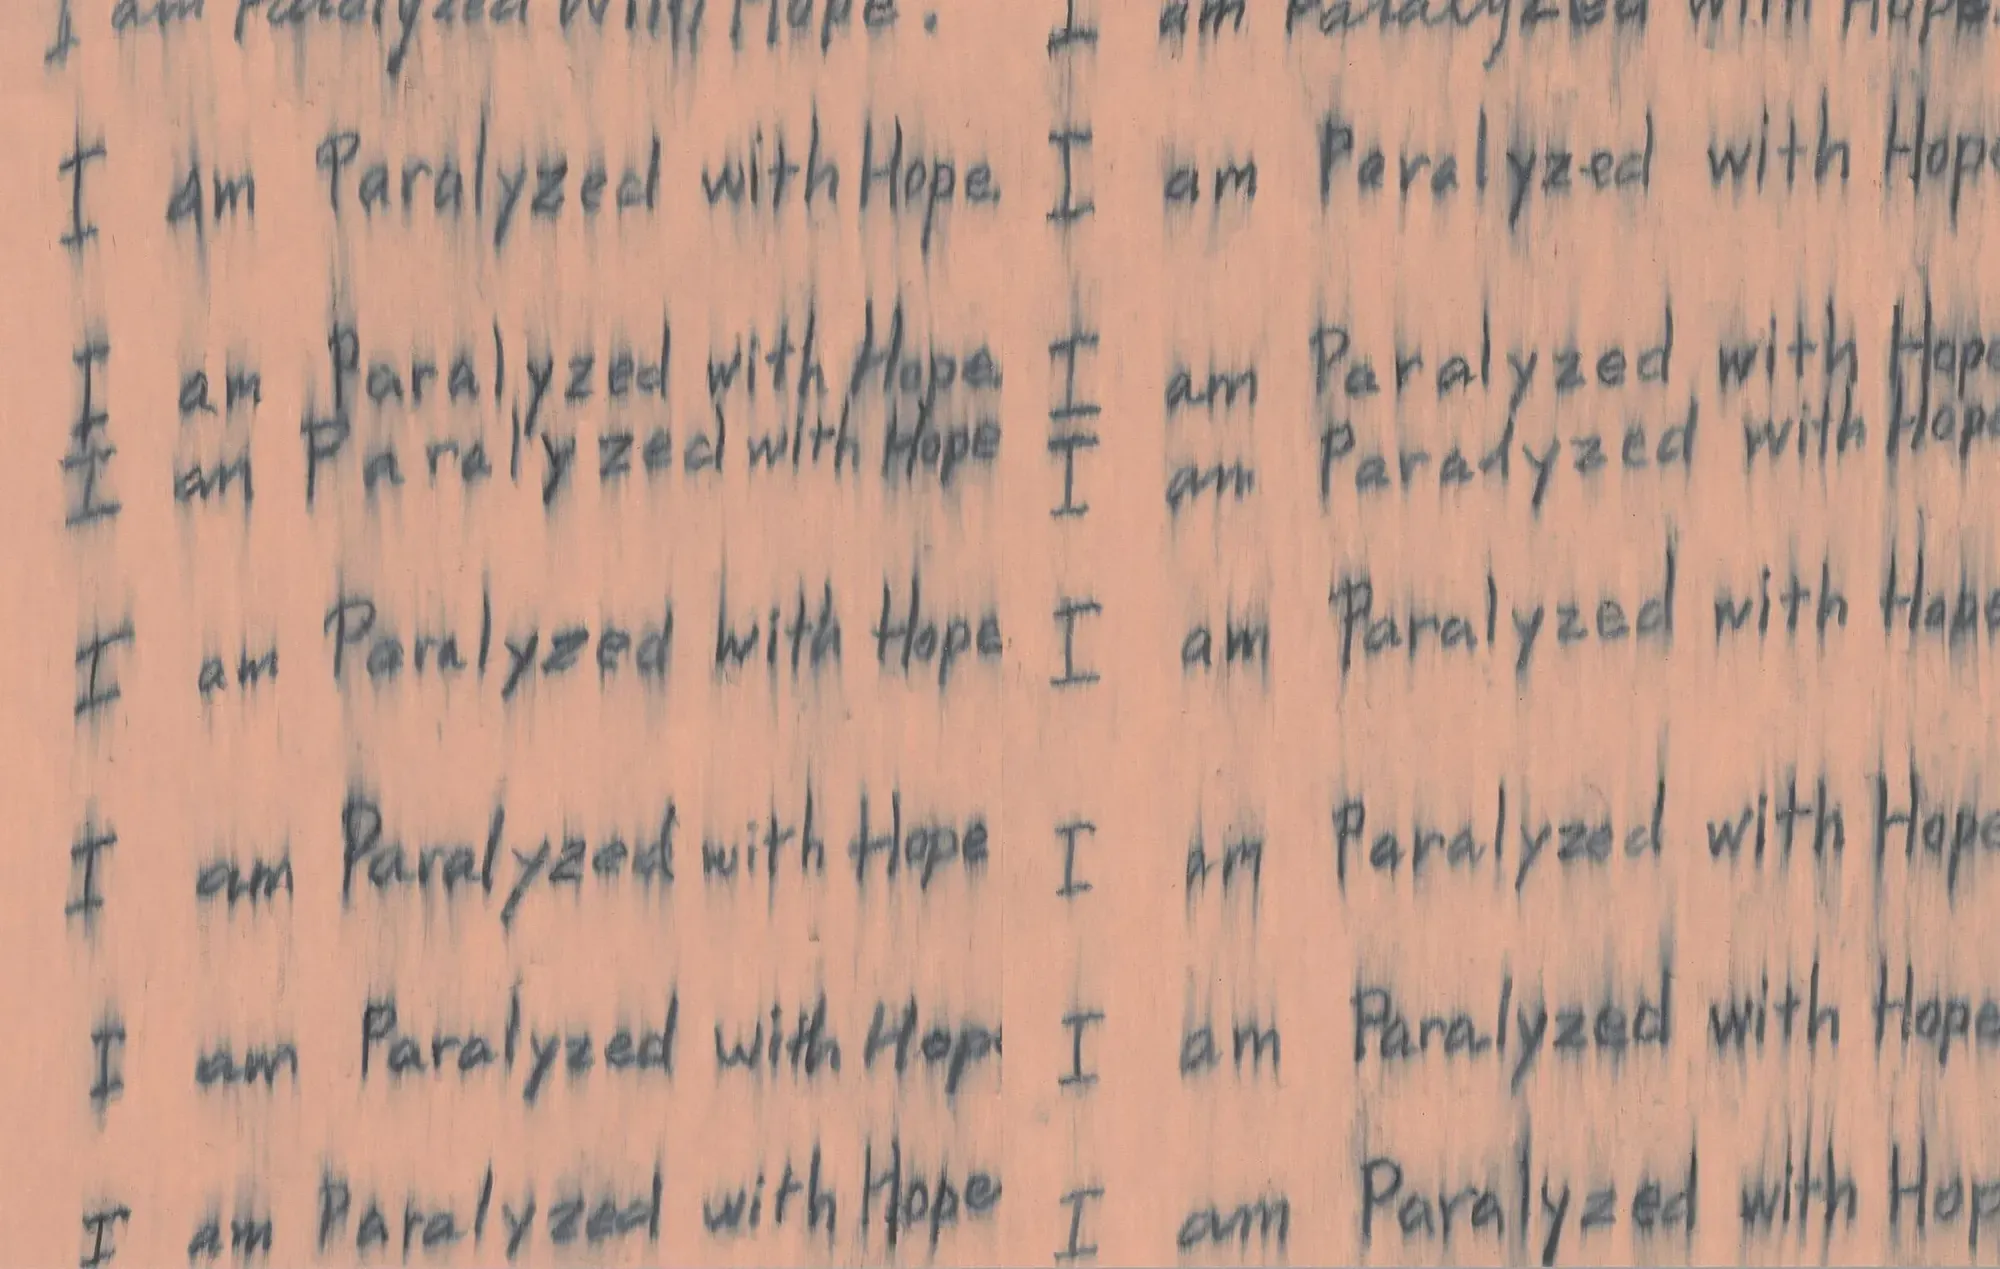 I am Paralyzed with Hope.
I am Paralyzed with Hope.
I am Paralyzed with Hope.
I am Paralyzed with Hope
I am Paralyzed with Hope
I am Paralyzed with Hope
I am Paralyzed with Hope
I am Paralyzed with Hope
I am Paralyzed with Hope.
I am Paralyzed with Hope
I am Paralyzed with Hope
I am Paralyzed with Hope
I am Paralyzed with Hope
I am Paralyzed with Hope
I am Paralyzed with Hope
I am Paralyzed with Hop